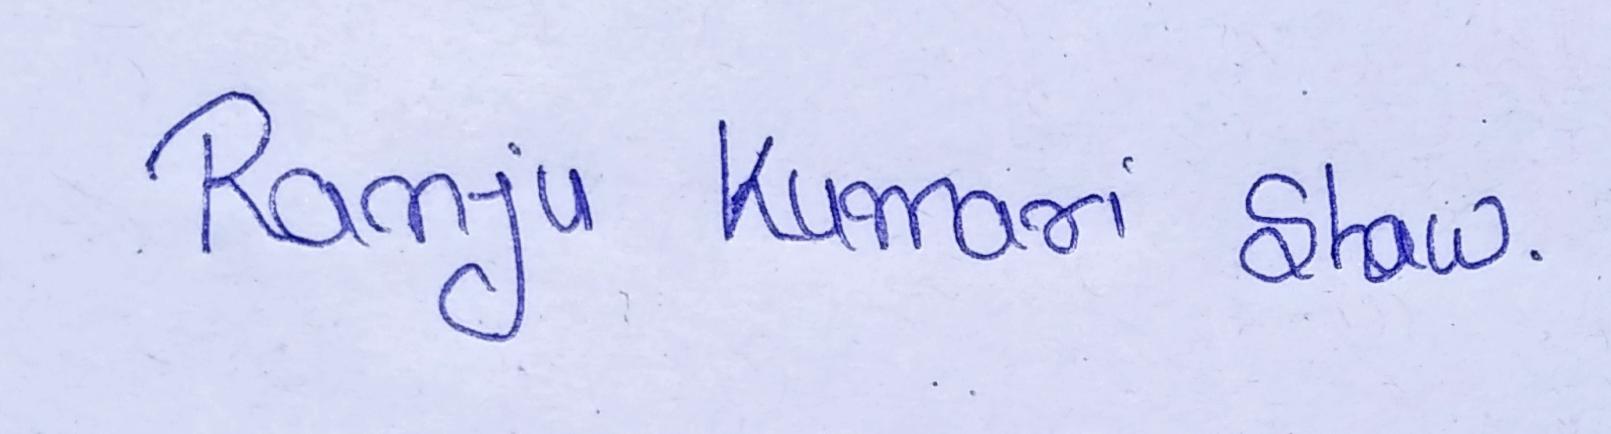 Ranju Kumari Shaw.